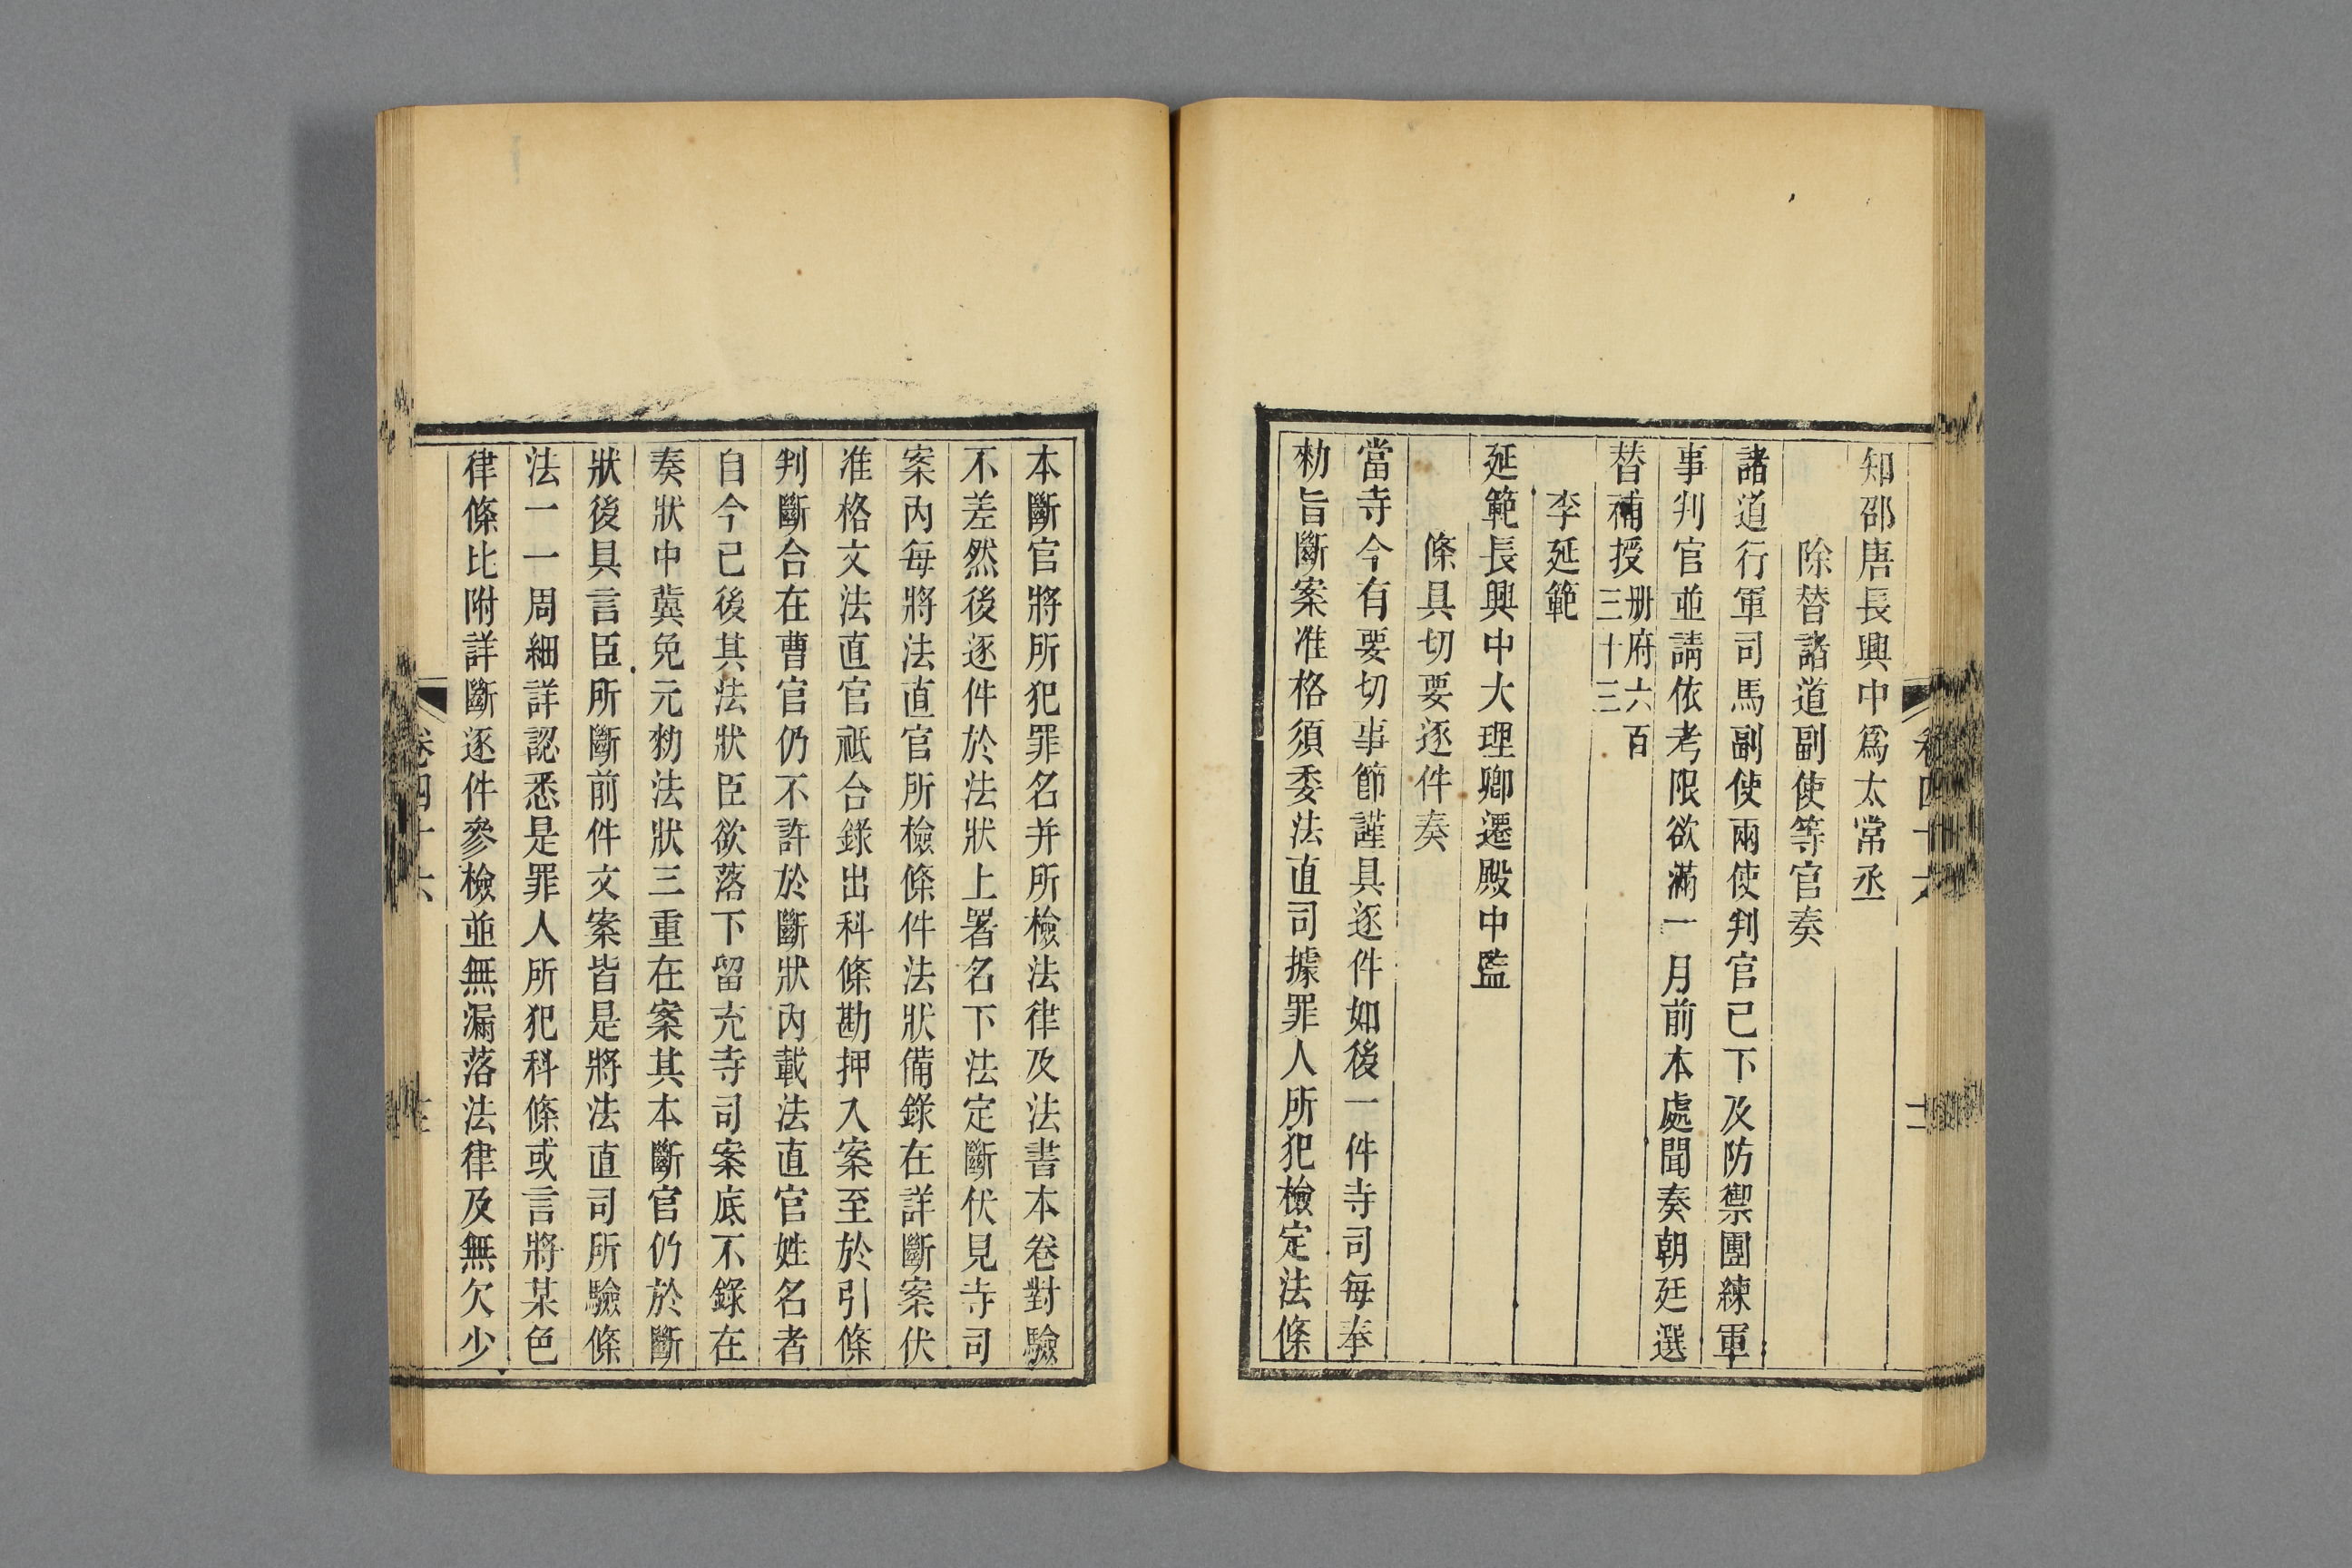 知邵唐長興中爲太常丞
除替諸道副使等官奏
諸道行軍司馬副使兩使判官已下及防禦團練軍
事判官並請依考限欲滿一月前本處聞奏朝廷選
替補授册府六百三十三
李延範
延範長興中大理卿遷殿中監
條具切要逐件奏
當寺今有要切事節謹具逐件如後一件寺司每奉
勑旨斷案准格須委法直司據罪人所犯檢定法條
本斷官將所犯罪名并所檢法律及法書本卷對驗
不差然後逐件於法狀上署名下法定斷伏見寺司
案內每將法直官所檢條件法狀備錄在詳斷案伏
准格文法直官祇合錄出科條勘押入案至於引條
判斷合在曹官仍不許於斷狀內載法直官姓名者
自今已後其法狀臣欲落下留充寺司案底不錄在
奏狀中冀免元勑法狀三重在案其本斷官仍於斷
狀後具言臣所斷前件文案皆是將法直司所驗條
法一一周細詳認悉是罪人所犯科條或言將某色
律條比附詳斷逐件參檢並無漏落法律及無欠少
卷四十六